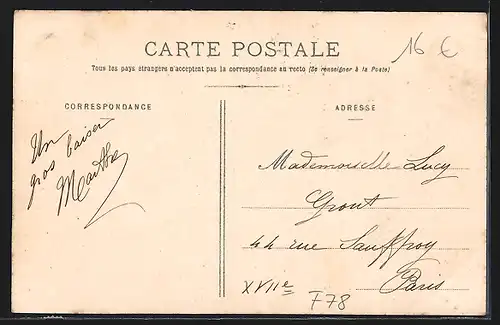 CARTE POSTALE
16 €
Tous les pays étrangers n'acceptent pas la correspondance au recto (Se renseigner à la Poste)
CORRESPONDANCE
ADRESSE
Un
gros baiser
Marthe
Mademoiselle Lucy
Grout
44 rue Sauffroy
XVIIe
Paris
F78